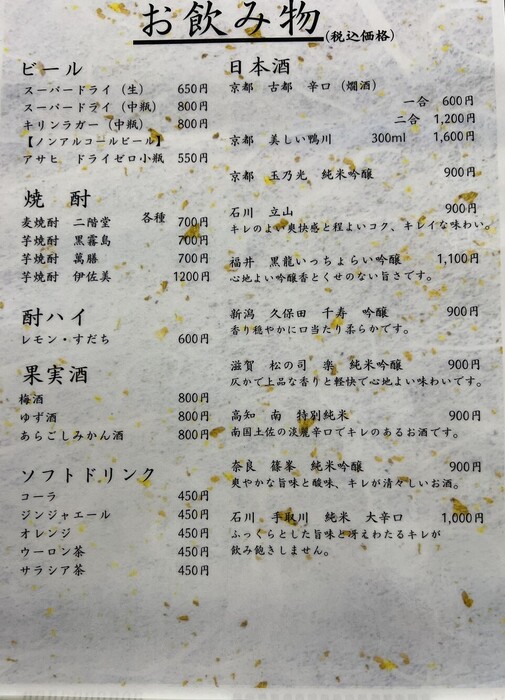 お飲み物
(税込価格)
ビール
スーパードライ(生) 650円
スーパードライ(中瓶) 800円
キリンラガー(中瓶) 800円
【ノンアルコールビール】
アサヒ ドライゼロ小瓶 550円
焼 酎
各種
麦焼酎 二階堂 700円
芋焼酎 黒霧島 700円
芋焼酎 萬膳 700円
芋焼酎 伊佐美 1200円
酎ハイ
レモン・すだち 600円
果実酒
梅酒 800円
ゆず酒 800円
あらごしみかん酒 800円
ソフトドリンク
コーラ 450円
ジンジャエール 450円
オレンジ 450円
ウーロン茶 450円
サラシア茶 450円
日本酒
京都 古都 辛口(燗酒)
一合 600円
二合 1,200円
京都 美しい鴨川 300ml 1,600円
京都 玉乃光 純米吟醸 900円
石川 立山 900円
キレのよい爽快感と程よいコク、キレイな味わい。
福井 黒龍いっちょらい吟醸 1,100円
心地よい吟醸香とくせのない旨さです。
新潟 久保田 千寿 吟醸 900円
香り穏やかに口当たり柔らかです。
滋賀 松の司 楽 純米吟醸 900円
仄かで上品な香りと軽快で心地よい味わいです。
高知 南 特別純米 900円
南国土佐の淡麗辛口でキレのあるお酒です。
奈良 篠峯 純米吟醸 900円
爽やかな旨味と酸味、キレが清々しいお酒。
石川 手取川 純米 大辛口 1,000円
ふっくらとした旨味と冴えわたるキレが
飲み飽きしません。